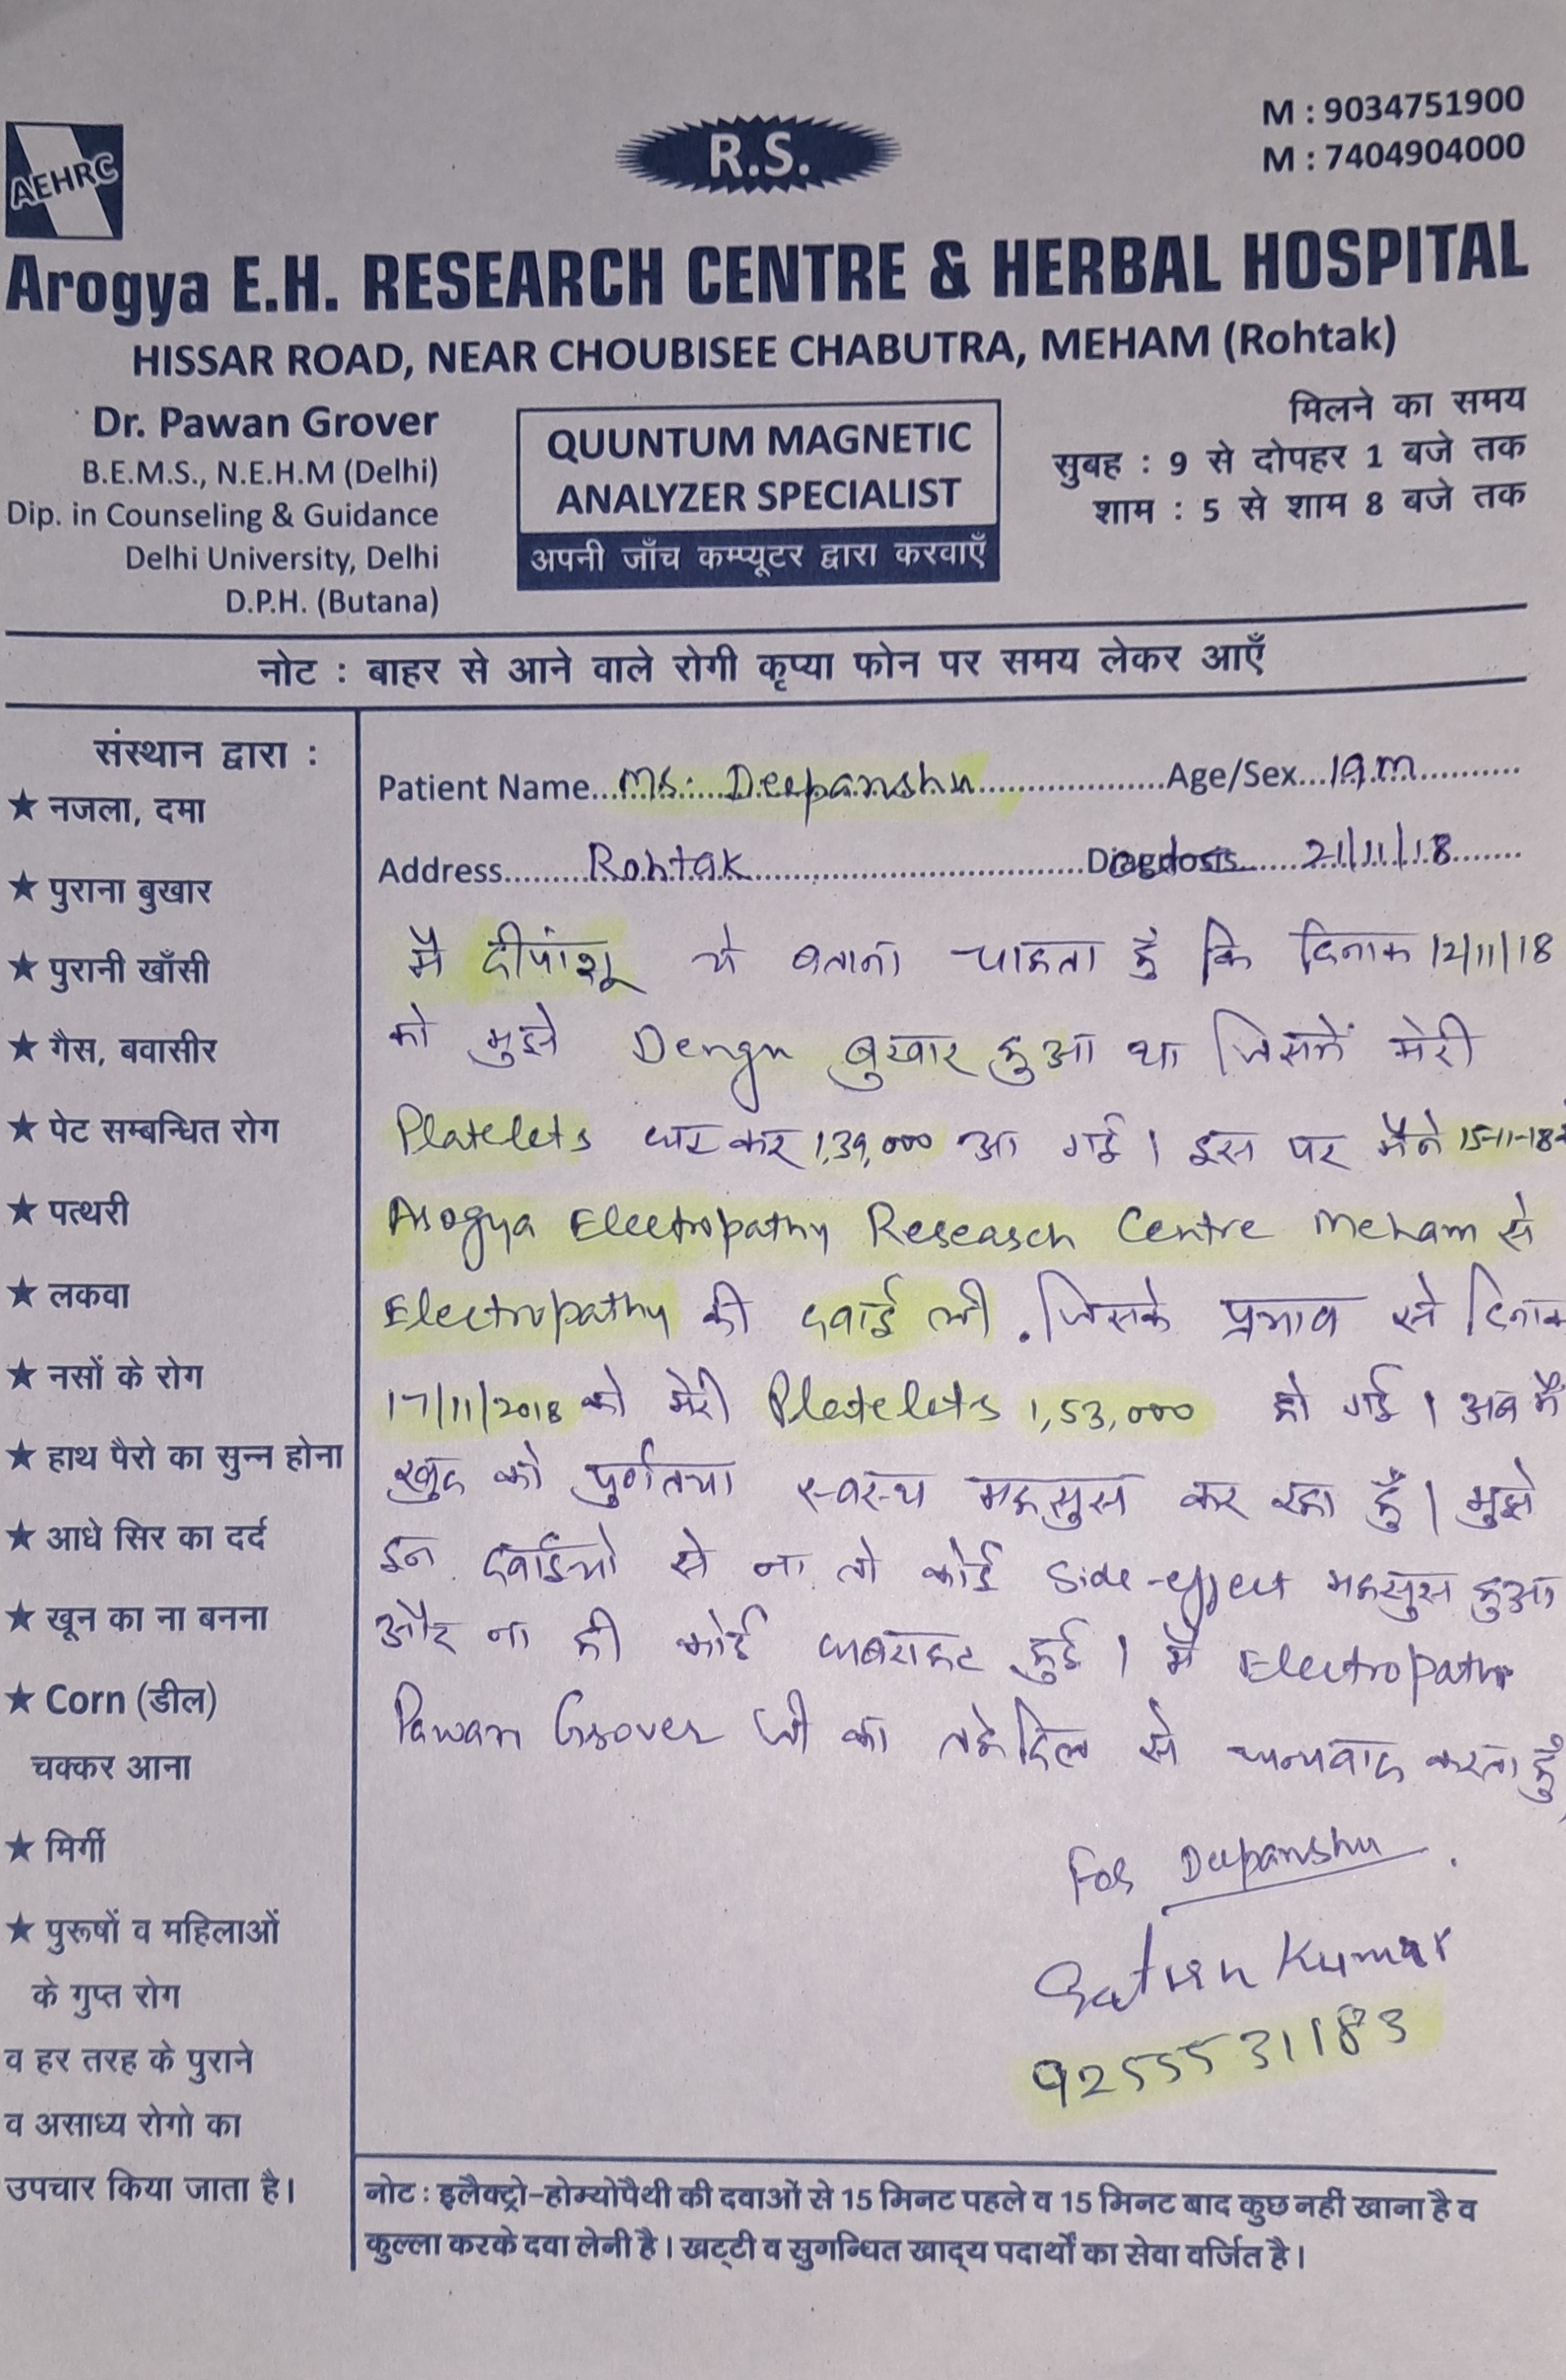 M : 9034751900
M : 7404904000
AEHRC
R.S.
Arogya E.H. RESEARCH CENTRE & HERBAL HOSPITAL
HISSAR ROAD, NEAR CHOUBISEE CHABUTRA, MEHAM (Rohtak)
Dr. Pawan Grover
B.E.M.S., N.E.H.M (Delhi)
Dip. in Counseling & Guidance
Delhi University, Delhi
D.P.H. (Butana)
QUUNTUM MAGNETIC
ANALYZER SPECIALIST
अपनी जाँच कम्प्यूटर द्वारा करवाएँ
मिलने का समय
सुबह : 9 से दोपहर 1 बजे तक
शाम : 5 से शाम 8 बजे तक
नोट : बाहर से आने वाले रोगी कृप्या फोन पर समय लेकर आएँ
संस्थान द्वारा :
★ नजला, दमा
★ पुराना बुखार
★ पुरानी खाँसी
★ गैस, बवासीर
★ पेट सम्बन्धित रोग
★ पत्थरी
★ लकवा
★ नसों के रोग
★ हाथ पैरो का सुन्न होना
★ आधे सिर का दर्द
★ खून का ना बनना
★ Corn (डील)
चक्कर आना
★ मिर्गी
★ पुरूषों व महिलाओं
के गुप्त रोग
व हर तरह के पुराने
व असाध्य रोगो का
उपचार किया जाता है।
Patient Name... Deepanshu ...Age/Sex... 19m
Address... Rohtak ... 21/11/18
मै दीपांशू ये बताना चाहता हुँ कि दिनाक 12/11/18
को मुझे Dengu बुखार हुआ था जिसमें मेरी
Platelets घट कर 1,39,000 आ गई। इस पर मैने 15-11-18
Arogya Electropathy Research Centre Meham से
Electropathy की दवाई ली. जिसके प्रभाव से दिनाक
17/11/2018 को मेरी Platelets 1,53,000 हो गई। अब मै
खुद को पुर्णतया स्वस्थ महसुस कर रहा हुँ। मुझे
इन दवाईयो से ना तो कोई Side-effect महसुस हुआ
और ना ही कोई घबराहट हुई। मै Electropath
Pawan Grover जी का तहेदिल से धन्यवाद करता हुँ
For Deepanshu.
Kumar
9255531183
नोट : इलैक्ट्रो-होम्योपैथी की दवाओं से 15 मिनट पहले व 15 मिनट बाद कुछ नही खाना है व
कुल्ला करके दवा लेनी है। खट्टी व सुगन्धित खाद्य पदार्थों का सेवा वर्जित है।